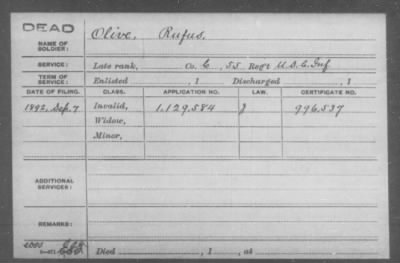 DEAD
NAME OF SOLDIER: Olive, Rufus.
SERVICE: Late rank, Co. C, 55 Reg't U.S.C. Inf
TERM OF SERVICE: Enlisted , 1 Discharged , 1
DATE OF FILING. CLASS. APPLICATION NO. LAW. CERTIFICATE NO.
1892, Sep. 7 Invalid, 1.129.584 J 996.537
Widow,
Minor,
ADDITIONAL SERVICES:
REMARKS:
Died , 1 , at